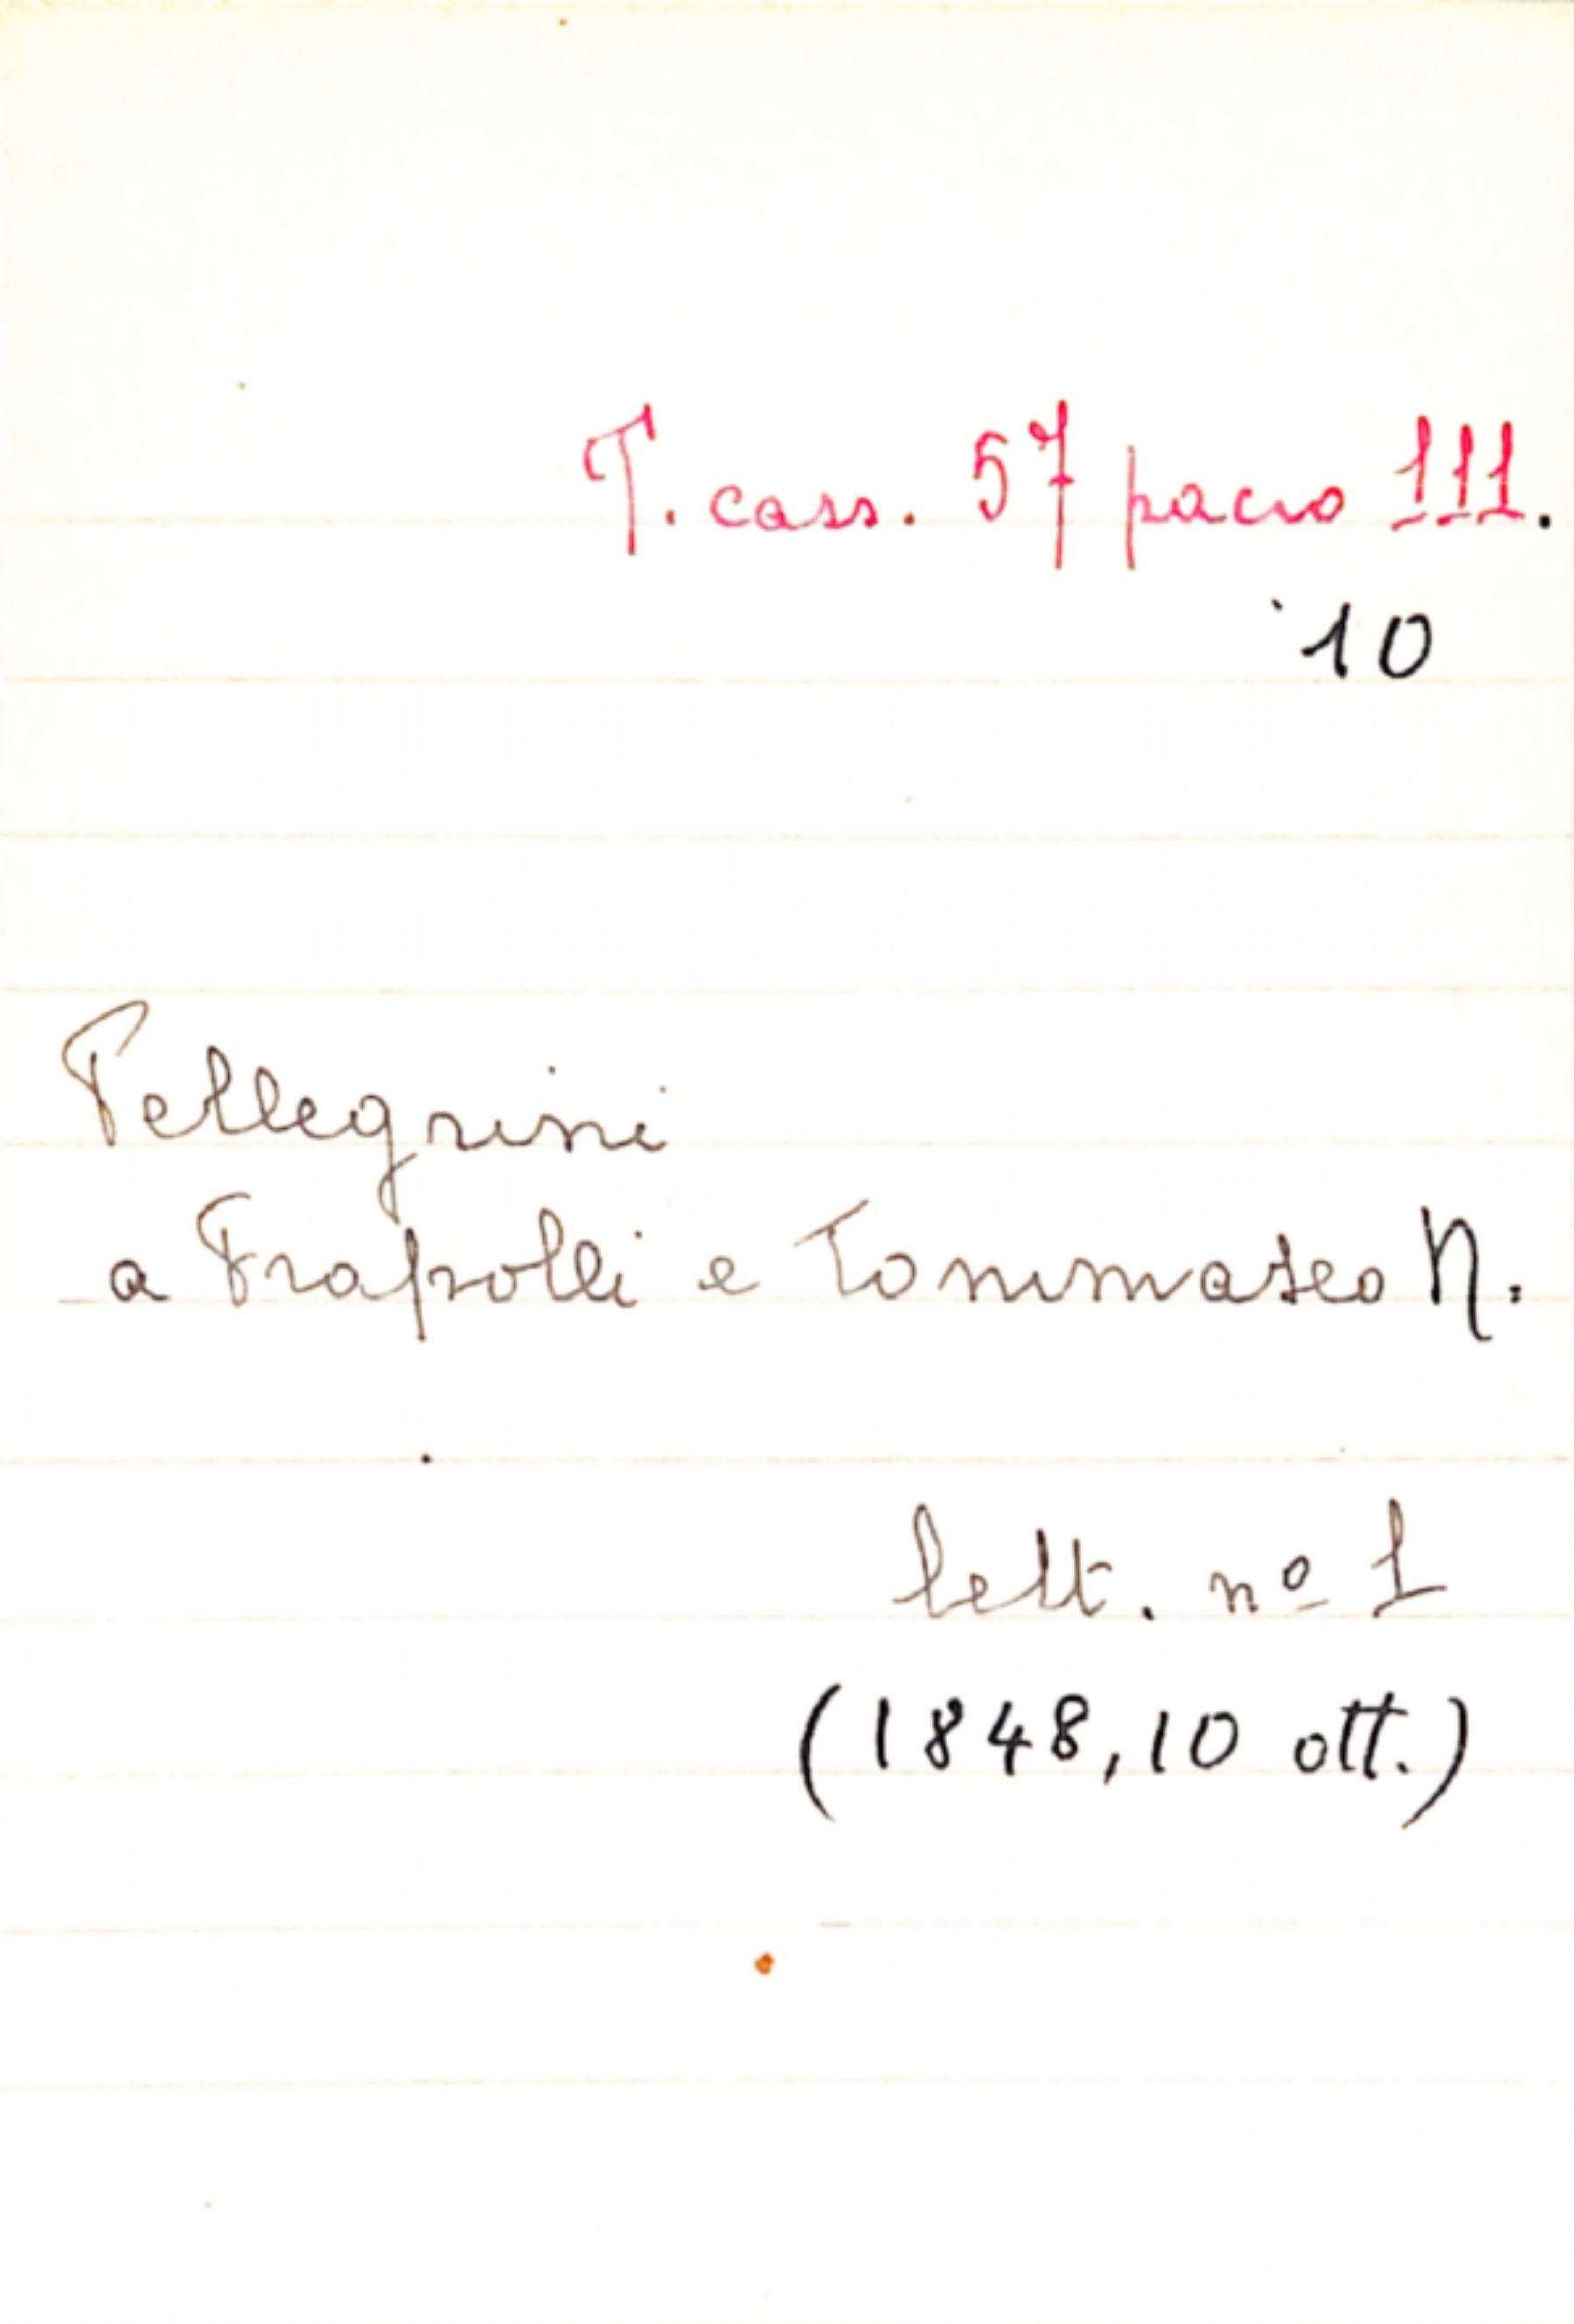 T. cass. 57 pacco 111.
10
Pellegrini
a Frapolli e Tommaseo N.
lett. nº 1
(1848, 10 ott.)